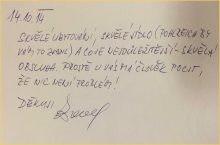 14.10.14
SKVĚLÉ UBYTOVÁNÍ, SKVĚLÉ JÍDLO (POHLREICH BY
VÁM TO ZBAVIL) A CO JE NEJDŮLEŽITĚJŠÍ - SKVĚLÁ
OBSLUHA. PROSTĚ U VÁS MÁ ČLOVĚK POCIT,
ŽE NIC NENÍ PROBLÉM!
DĚKUJI